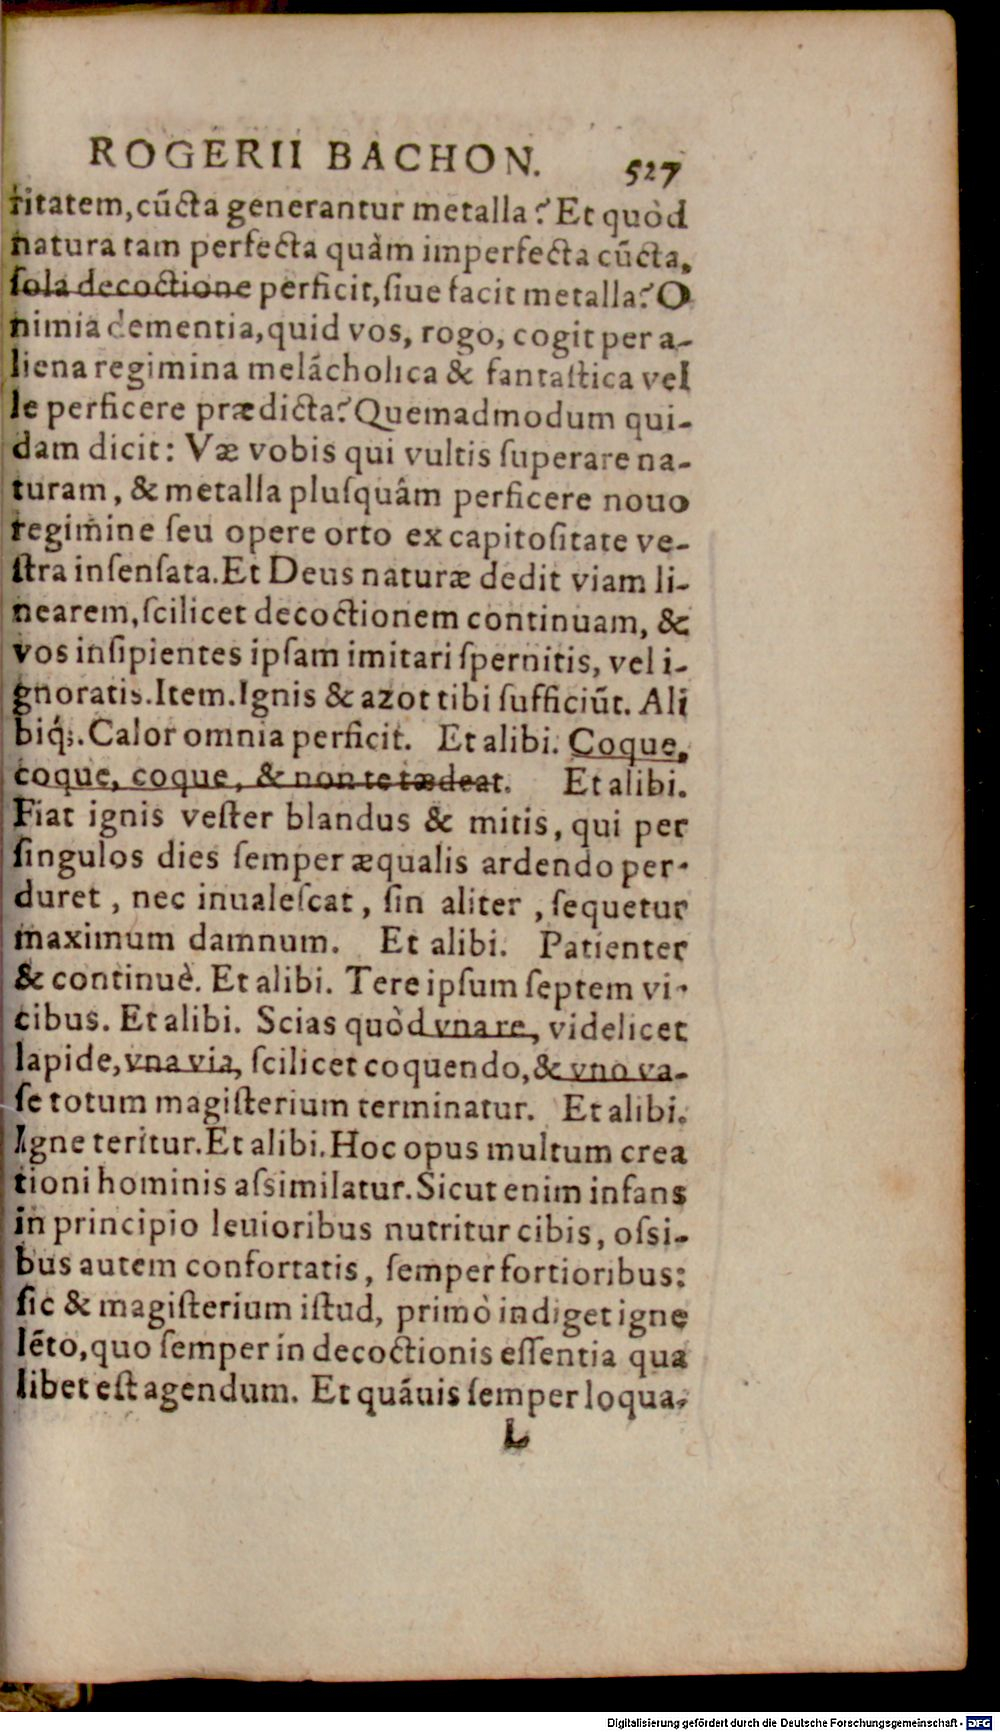 ROGERII BACHON. 527
ritatem, cūcta generantur metalla? Et quòd
natura tam perfecta quàm imperfecta cūcta,
ſola decoctione perficit, ſiue facit metalla? O
nimia dementia, quid vos, rogo, cogit per a-
liena regimina melácholica & fantaſtica vel
le perficere prædicta? Quemadmodum qui-
dam dicit: Væ vobis qui vultis ſuperare na-
turam, & metalla pluſquâm perficere nouo
regimine ſeu opere orto ex capitoſitate ve-
ſtra inſenſata. Et Deus naturæ dedit viam li-
nearem, ſcilicet decoctionem continuam, &
vos inſipientes ipſam imitari ſpernitis, vel i-
gnoratis. Item. Ignis & azot tibi ſufficiūt. Ali
biq́;. Calor omnia perficit. Et alibi. Coque,
coque, coque, & non te tædeat. Et alibi.
Fiat ignis veſter blandus & mitis, qui per
ſingulos dies ſemper æqualis ardendo per-
duret, nec inualeſcat, ſin aliter, ſequetur
maximum damnum. Et alibi. Patienter
& continuè. Et alibi. Tere ipſum ſeptem vi-
cibus. Et alibi. Scias quòd vna re, videlicet
lapide, vna via, ſcilicet coquendo, & vno va-
ſe totum magiſterium terminatur. Et alibi.
Igne teritur. Et alibi. Hoc opus multum crea
tioni hominis aſsimilatur. Sicut enim infans
in principio leuioribus nutritur cibis, oſsi-
bus autem confortatis, ſemper fortioribus:
ſic & magiſterium iſtud, primò indiget igne
lēto, quo ſemper in decoctionis eſſentia qua
libet eſt agendum. Et quāuis ſemper loqua-
L
Digitalisierung gefördert durch die Deutsche Forschungsgemeinschaft - DFG